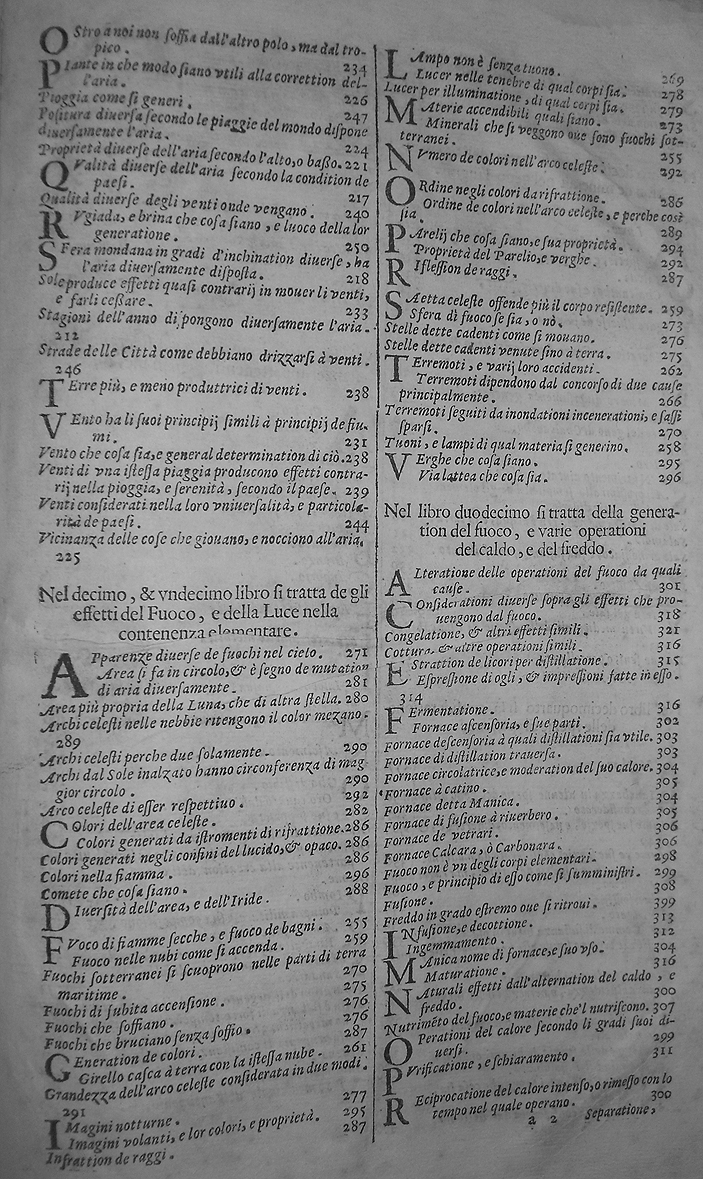 OStro a noi non soffia dall'altro polo, ma dal tro-
pico. 234
PIante in che modo siano vtili alla correttion del-
l'aria. 226
Pioggia come si generi. 247
Positura diuersa secondo le piagge del mondo dispone
diuersamente l'aria. 224
Proprietà diuerse dell'aria secondo l'alto, o basso. 221
QValità diuerse dell'aria secondo la condition de
paesi. 217
Qualità diuerse degli venti onde vengano. 240
RVgiada, e brina che cosa siano, e luoco della lor
generatione. 250
SFera mondana in gradi d'inchination diuerse, ha
l'aria diuersamente disposta. 218
Sole produce effetti quasi contrarij in mouer li venti,
e farli cessare. 233
Stagioni dell'anno dispongono diuersamente l'aria.
212
Strade delle Città come debbiano drizzarsi à venti.
246
TErre più, e meno produttrici di venti. 238
VEnto ha li suoi principij simili à principij de fiu-
mi. 231
Vento che cosa sia, e general determination di ciò. 238
Venti di vna istessa piaggia producono effetti contra-
rij nella pioggia, e serenità, secondo il paese. 239
Venti considerati nella loro vniuersalità, e particola-
rità de paesi. 244
Vicinanza delle cose che giouano, e nocciono all'aria.
225
Nel decimo, & vndecimo libro si tratta de gli
effetti del Fuoco, e della Luce nella
contenenza elementare.
APparenze diuerse de fuochi nel cielo. 271
Area si fa in circolo, & è segno de mutation
di aria diuersamente. 281
Area più propria della Luna, che di altra stella. 280
Archi celesti nelle nebbie ritengono il color mezano.
289
Archi celesti perche due solamente. 290
Archi dal Sole inalzato hanno circonferenza di mag-
gior circolo. 290
Arco celeste di esser respettiuo. 292
COlori dell'area celeste. 282
Colori generati da istromenti di rifrattione. 286
Colori generati negli confini del lucido, & opaco. 286
Colori nella fiamma. 286
Comete che cosa siano. 296
DIuersità dell'area, e dell'Iride. 288
FVoco di fiamme secche, e fuoco de bagni. 255
Fuoco nelle nubi come si accenda. 259
Fuochi sotterranei si scuoprono nelle parti di terra
maritime. 270
Fuochi di subita accensione. 275
Fuochi che soffiano. 276
Fuochi che bruciano senza soffio. 276
GEneration de colori. 287
Girello casca à terra con la istessa nube. 261
Grandezza dell'arco celeste considerata in due modi.
291 277
IMagini notturne. 295
Imagini volanti, e lor colori, e proprietà. 287
Infrattion de raggi.
LAmpo non è senza tuono. 269
Lucer nelle tenebre di qual corpi sia. 278
Lucer per illuminatione, di qual corpi sia. 279
MAterie accendibili quali siano. 273
Minerali che si veggono oue sono fuochi sot-
terranei. 255
NVmero de colori nell'arco celeste. 292
ORdine negli colori da rifrattione. 286
Ordine de colori nell'arco celeste, e perche così
sia. 289
PArelij che cosa siano, e sua proprietà. 294
Proprietà del Parelio, e verghe. 292
RIflession de raggi. 287
SAetta celeste offende più il corpo resistente. 259
Sfera di fuoco se sia, o nò. 273
Stelle dette cadenti come si mouano. 276
Stelle dette cadenti venute sino à terra. 275
TErremoti, e varij loro accidenti. 262
Terremoti dipendono dal concorso di due cause
principalmente. 266
Terremoti seguiti da inondationi incenerationi, e sassi
sparsi. 270
Tuoni, e lampi di qual materia si generino. 258
VErghe che cosa siano. 295
Via lattea che cosa sia. 296
Nel libro duodecimo si tratta della genera-
tion del fuoco, e varie operationi
del caldo, e del freddo.
ALteratione delle operationi del fuoco da quali
cause. 301
COnsiderationi diuerse sopra gli effetti che pro-
uengono dal fuoco. 318
Congelatione, & altri effetti simili. 321
Cottura, & altre operationi simili. 316
EStrattion de licori per distillatione. 315
Espressione di ogli, & impressioni fatte in esso.
314
FErmentatione. 316
Fornace ascensoria, e sue parti. 302
Fornace descensoria à quali distillationi sia vtile. 303
Fornace di distillation trauersa. 303
Fornace circolatrice, e moderation del suo calore. 304
Fornace à catino. 305
Fornace detta Manica. 304
Fornace di fusione à riuerbero. 305
Fornace de vetrari. 306
Fornace Calcara, ò Carbonara. 306
Fuoco non è vn degli corpi elementari. 298
Fuoco, e principio di esso come si sumministri. 299
Fusione. 308
Freddo in grado estremo oue si ritroui. 399
INfusione, e decottione. 313
Ingemmamento. 312
MAnica nome di fornace, e suo vso. 304
Maturatione. 316
NAturali effetti dall'alternation del caldo, e
freddo. 300
Nutrimẽto del fuoco, e materie che'l nutriscono. 307
OPerationi del calore secondo li gradi suoi di-
uersi. 299
PVrificatione, e schiaramento. 311
REciprocatione del calore intenso, o rimesso con lo
tempo nel quale operano. 300
a 2 Separatione,